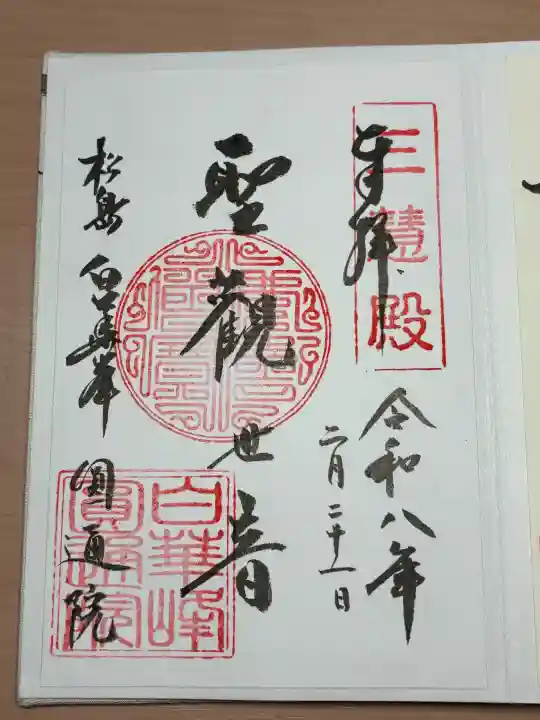 奉拝
三慧殿
令和八年
二月二十一日
聖觀世音
松島 白華峯 圓通院
白華峰
圓通院